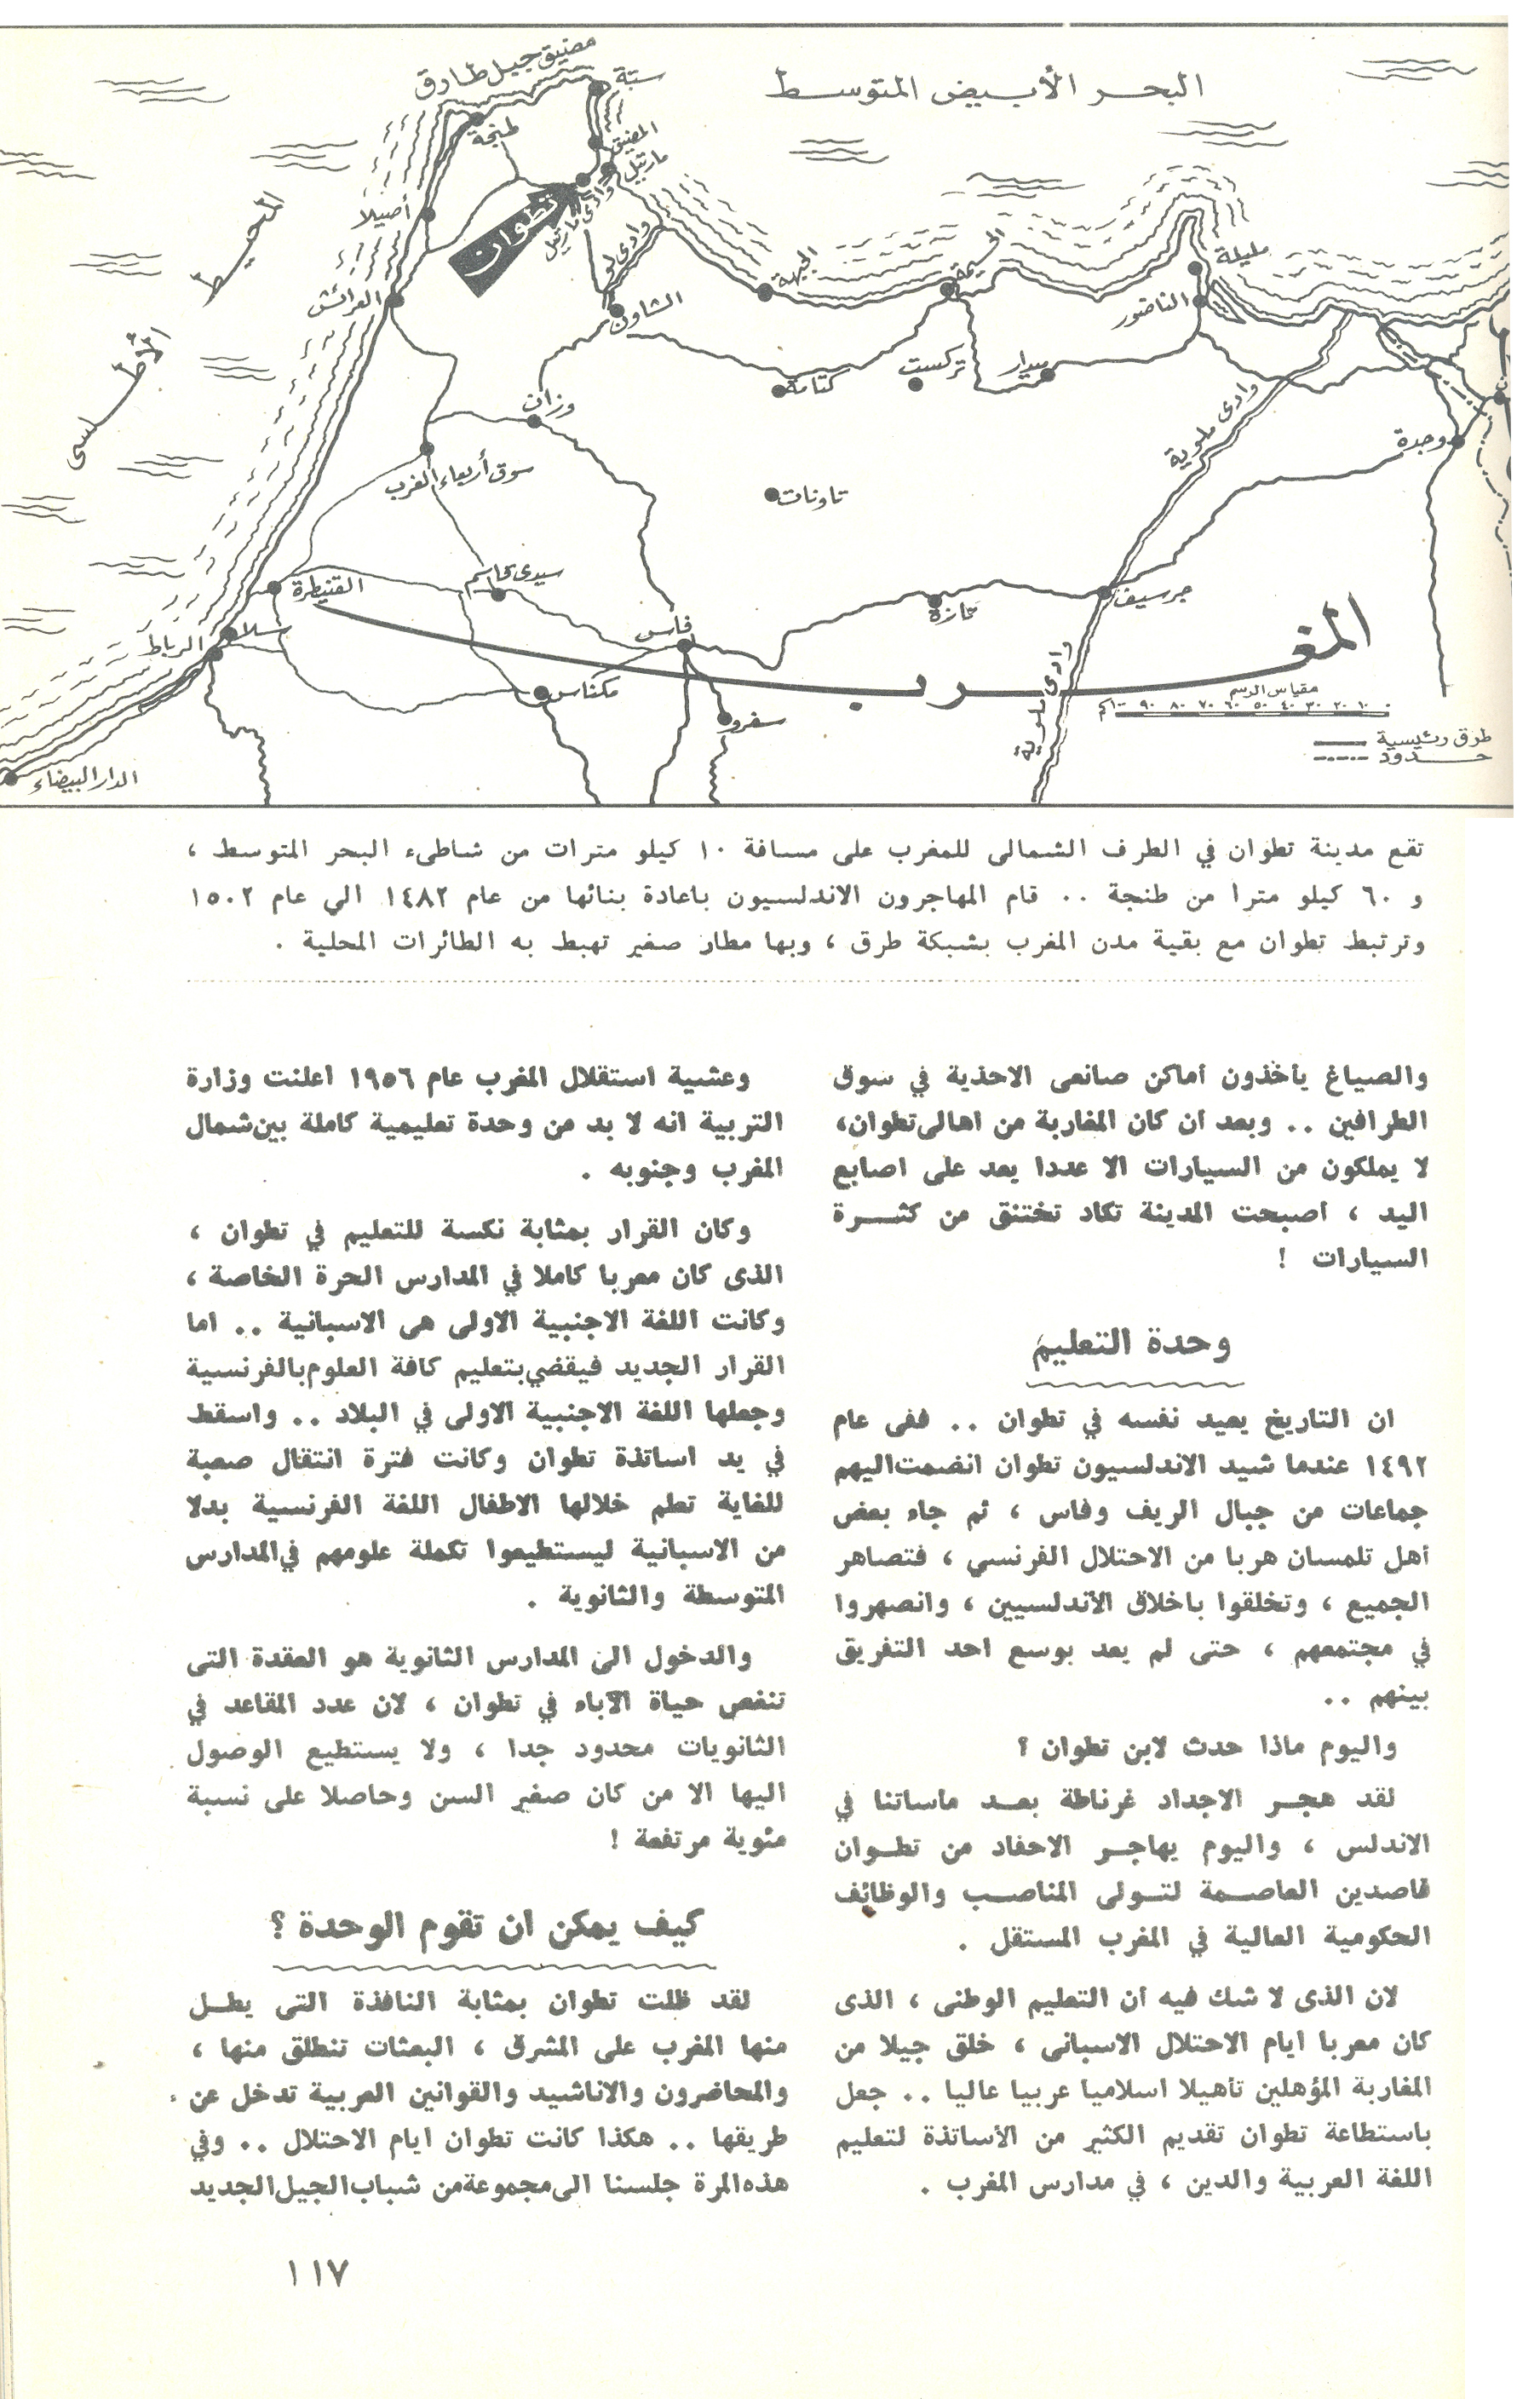 البحر الأبيض المتوسط
مضيق جبل طارق
سبتة
طنجة
المضيق
مارتيل
تطوان
وادى مارتيل
وادى لو
أصيلا
المحيط
الأطلسى
العرائش
الشاون
الجبهة
الحسيمة
مليلة
الناضور
كتامة
تركست
ميدار
وادى ملوية
وجدة
وزان
سوق أربعاء الغرب
تاونات
سيدى قاسم
القنيطرة
سلا
الرباط
فاس
تازة
جرسيف
مكناس
سفرو
وادى ملوية
الدار البيضاء
المغرب
مقياس الرسم
٠ ١٠ ٢٠ ٣٠ ٤٠ ٥٠ ٦٠ ٧٠ ٨٠ ٩٠ ١٠٠ كم
طرق رئيسية
حدود
تقع مدينة تطوان في الطرف الشمالى للمغرب على مسافة ١٠ كيلو مترات من شاطىء البحر المتوسط ،
و ٦٠ كيلو مترا من طنجة .. قام المهاجرون الاندلسيون باعادة بنائها من عام ١٤٨٢ الي عام ١٥٠٢
وترتبط تطوان مع بقية مدن المغرب بشبكة طرق ، وبها مطار صغير تهبط به الطائرات المحلية .
والصياغ يأخذون أماكن صانعى الاحذية في سوق
الطرافين .. وبعد ان كان المغاربة من اهالى تطوان،
لا يملكون من السيارات الا عددا يعد على اصابع
اليد ، اصبحت المدينة تكاد تختنق من كثرة
السيارات !
وحدة التعليم
ان التاريخ يعيد نفسه في تطوان .. ففى عام
١٤٩٢ عندما شيد الاندلسيون تطوان انضمت اليهم
جماعات من جبال الريف وفاس ، ثم جاء بعض
أهل تلمسان هربا من الاحتلال الفرنسي ، فتصاهر
الجميع ، وتخلقوا باخلاق الأندلسيين ، وانصهروا
في مجتمعهم ، حتى لم يعد بوسع احد التفريق
بينهم ..
واليوم ماذا حدث لابن تطوان ؟
لقد هجر الاجداد غرناطة بعد ماساتنا في
الاندلس ، واليوم يهاجر الاحفاد من تطوان
قاصدين العاصمة لتولى المناصب والوظائف
الحكومية العالية في المغرب المستقل .
لان الذى لا شك فيه ان التعليم الوطنى ، الذى
كان معربا ايام الاحتلال الاسبانى ، خلق جيلا من
المغاربة المؤهلين تأهيلا اسلاميا عربيا عاليا .. جعل
باستطاعة تطوان تقديم الكثير من الأساتذة لتعليم
اللغة العربية والدين ، في مدارس المغرب .
وعشية استقلال المغرب عام ١٩٥٦ اعلنت وزارة
التربية انه لا بد من وحدة تعليمية كاملة بين شمال
المغرب وجنوبه .
وكان القرار بمثابة نكسة للتعليم في تطوان ،
الذى كان معربا كاملا في المدارس الحرة الخاصة ،
وكانت اللغة الاجنبية الاولى هى الاسبانية .. اما
القرار الجديد فيقضي بتعليم كافة العلوم بالفرنسية
وجعلها اللغة الاجنبية الاولى في البلاد .. واسقط
في يد اساتذة تطوان وكانت فترة انتقال صعبة
للغاية تعلم خلالها الاطفال اللغة الفرنسية بدلا
من الاسبانية ليستطيعوا تكملة علومهم في المدارس
المتوسطة والثانوية .
والدخول الى المدارس الثانوية هو العقدة التى
تنغص حياة الآباء في تطوان ، لان عدد المقاعد في
الثانويات محدود جدا ، ولا يستطيع الوصول
اليها الا من كان صغير السن وحاصلا على نسبة
مئوية مرتفعة !
كيف يمكن ان تقوم الوحدة ؟
لقد ظلت تطوان بمثابة النافذة التى يطل
منها المغرب على المشرق ، البعثات تنطلق منها ،
والمحاضرون والاناشيد والقوانين العربية تدخل عن
طريقها .. هكذا كانت تطوان ايام الاحتلال .. وفي
هذه المرة جلسنا الى مجموعة من شباب الجيل الجديد
١١٧